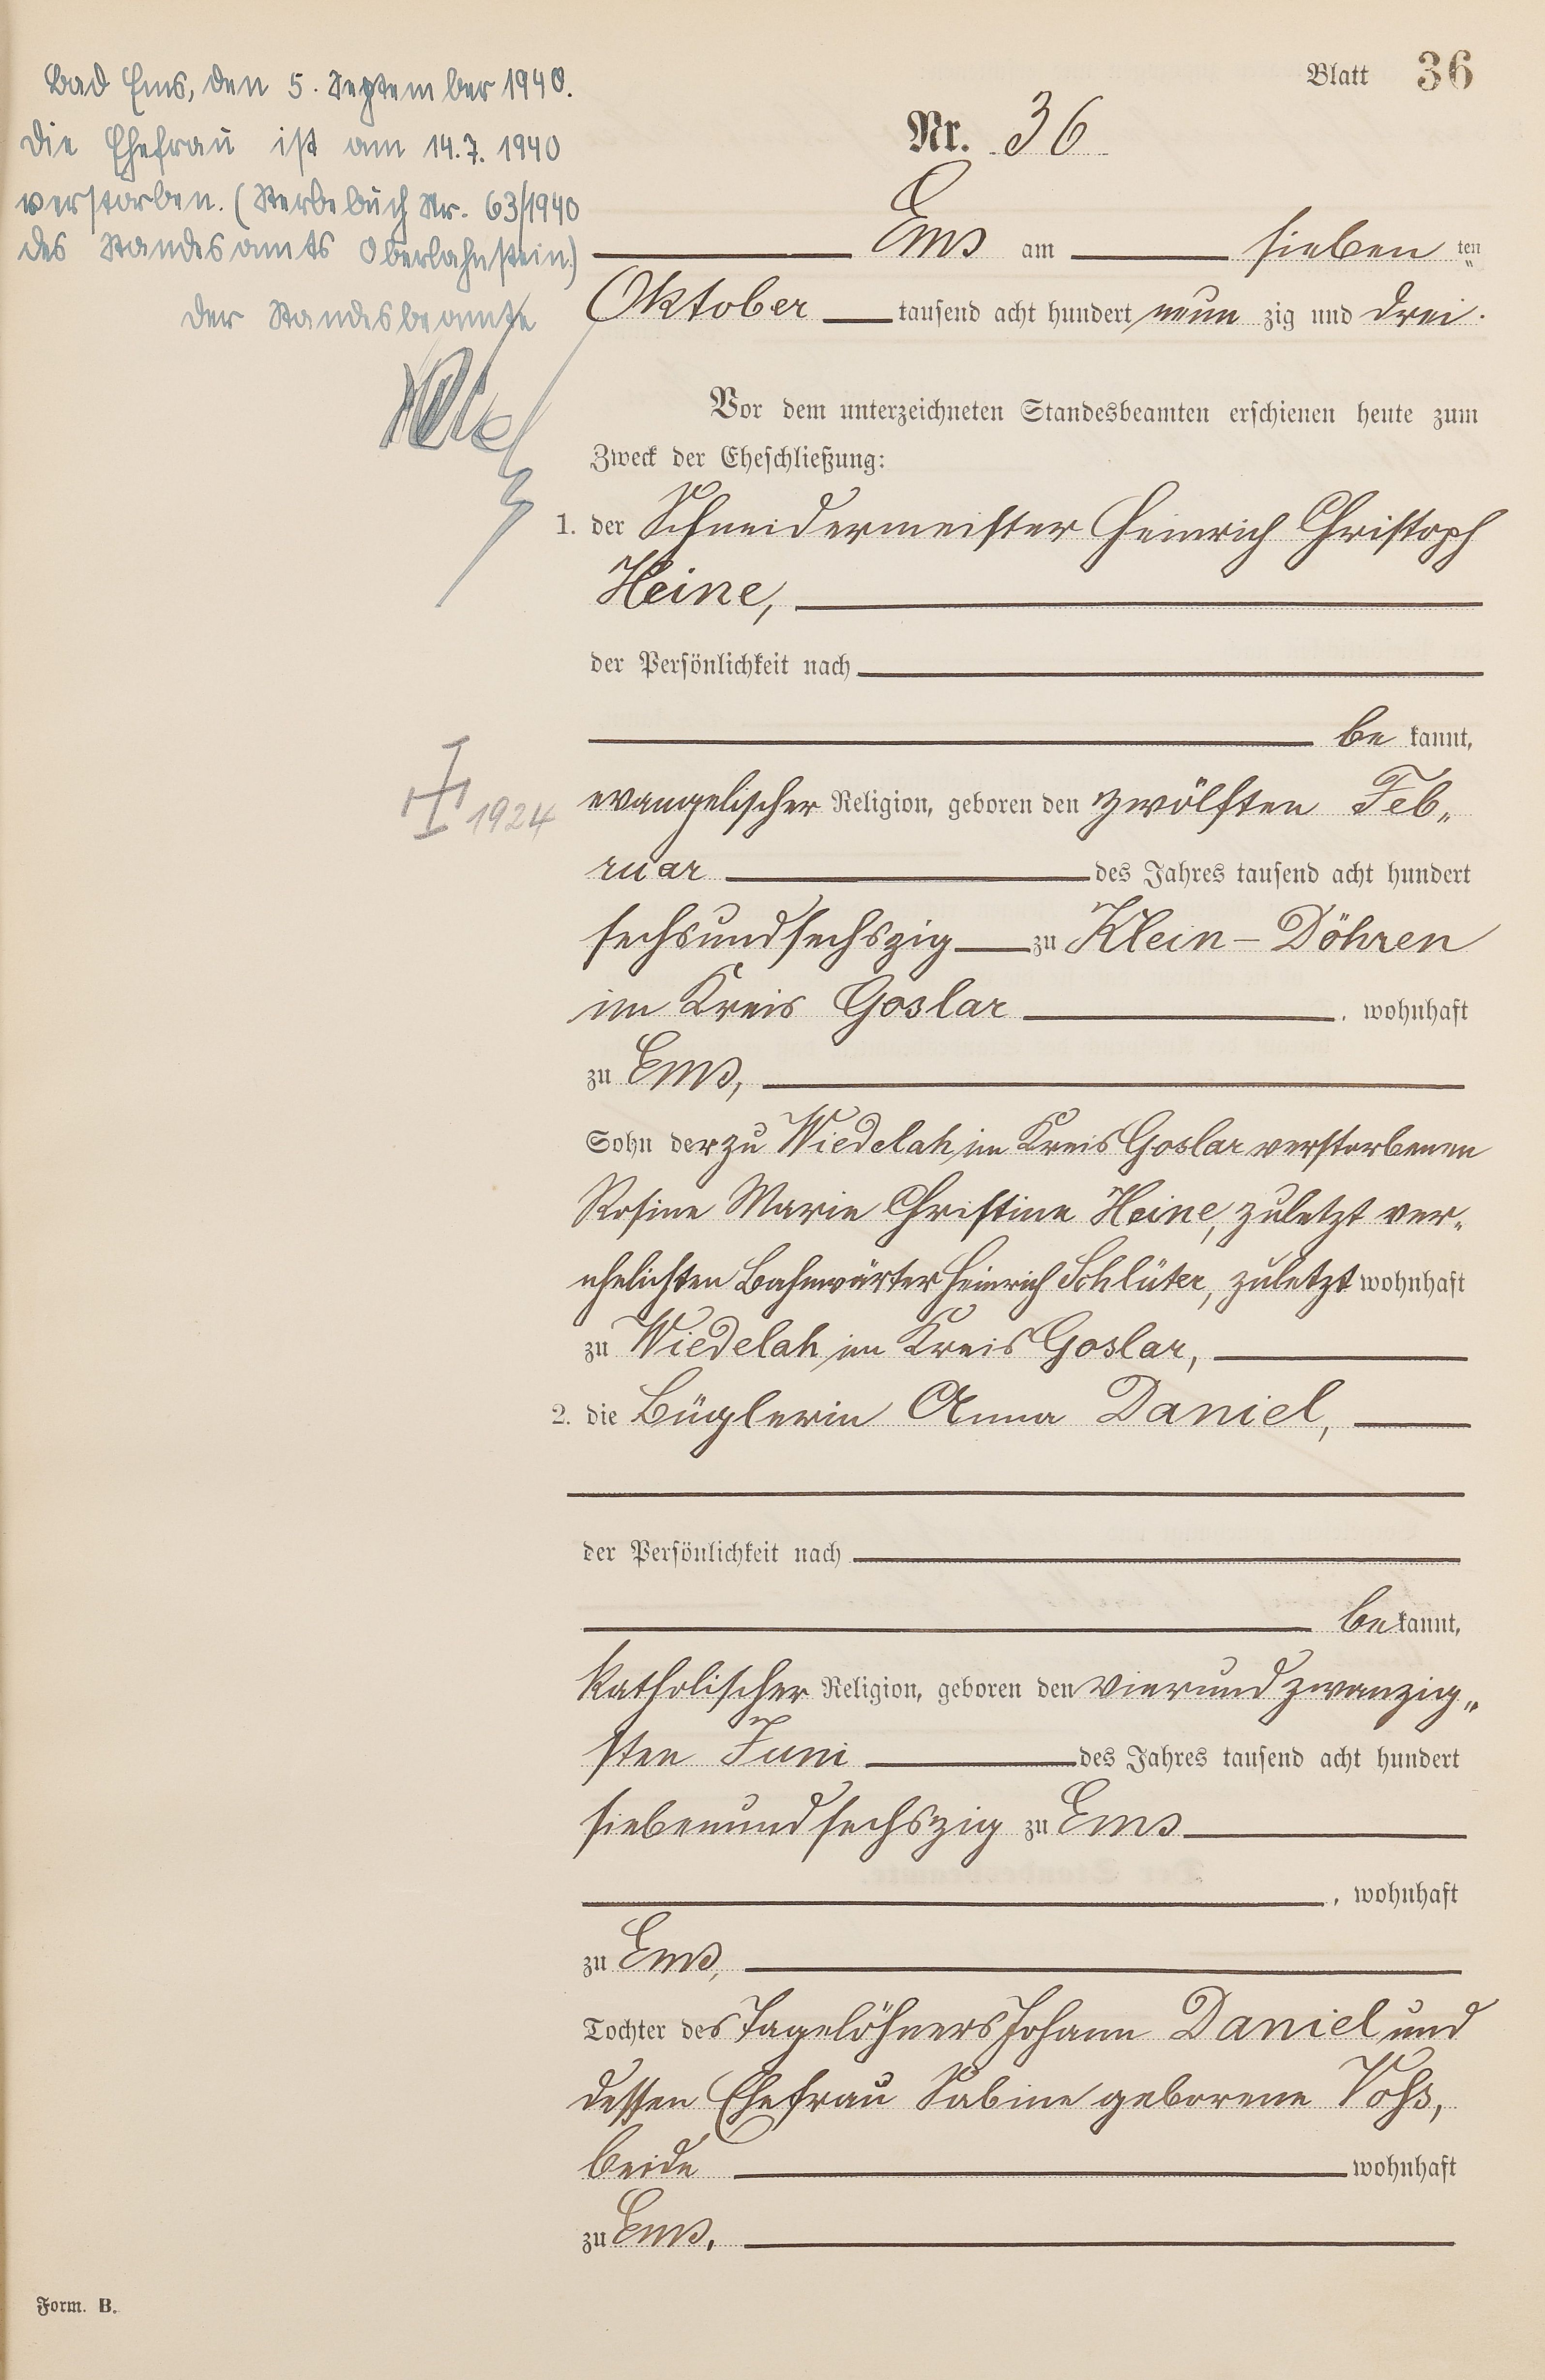 Blatt 36
Nr. 36
Bad Ems, den 5. September 1940.
Die Ehefrau ist am 14.7. 1940
verstorben. (Sterbebuch Nr. 63/1940
des Standesamts Oberlahnstein)
Der Standesbeamte
Ems am sieben ten
Oktober tausend acht hundert neun zig und drei.
Vor dem unterzeichneten Standesbeamten erschienen heute zum
Zweck der Eheschließung:
1. der Schneidermeister Heinrich Christoph
Heine,
der Persönlichkeit nach
be kannt,
1924
evangelischer Religion, geboren den zwölften Feb„
ruar des Jahres tausend acht hundert
sechsundsechszig zu Klein-Döhren
im Kreis Goslar, wohnhaft
zu Ems,
Sohn der zu Wiedelah im Kreis Goslar verstorbenen
Rosine Marie Christine Heine, zuletzt ver„
ehelichten Bahnwärter Heinrich Schlüter, zuletzt wohnhaft
zu Wiedelah im Kreis Goslar,
2. die Büglerin Anna Daniel,
der Persönlichkeit nach
be kannt,
katholischer Religion, geboren den vierundzwanzig„
sten Juni des Jahres tausend acht hundert
siebenundsechszig zu Ems
, wohnhaft
zu Ems,
Tochter des Tagelöhners Johann Daniel und
dessen Ehefrau Sabine geborene Vohs,
beide wohnhaft
zu Ems.
Form. B.